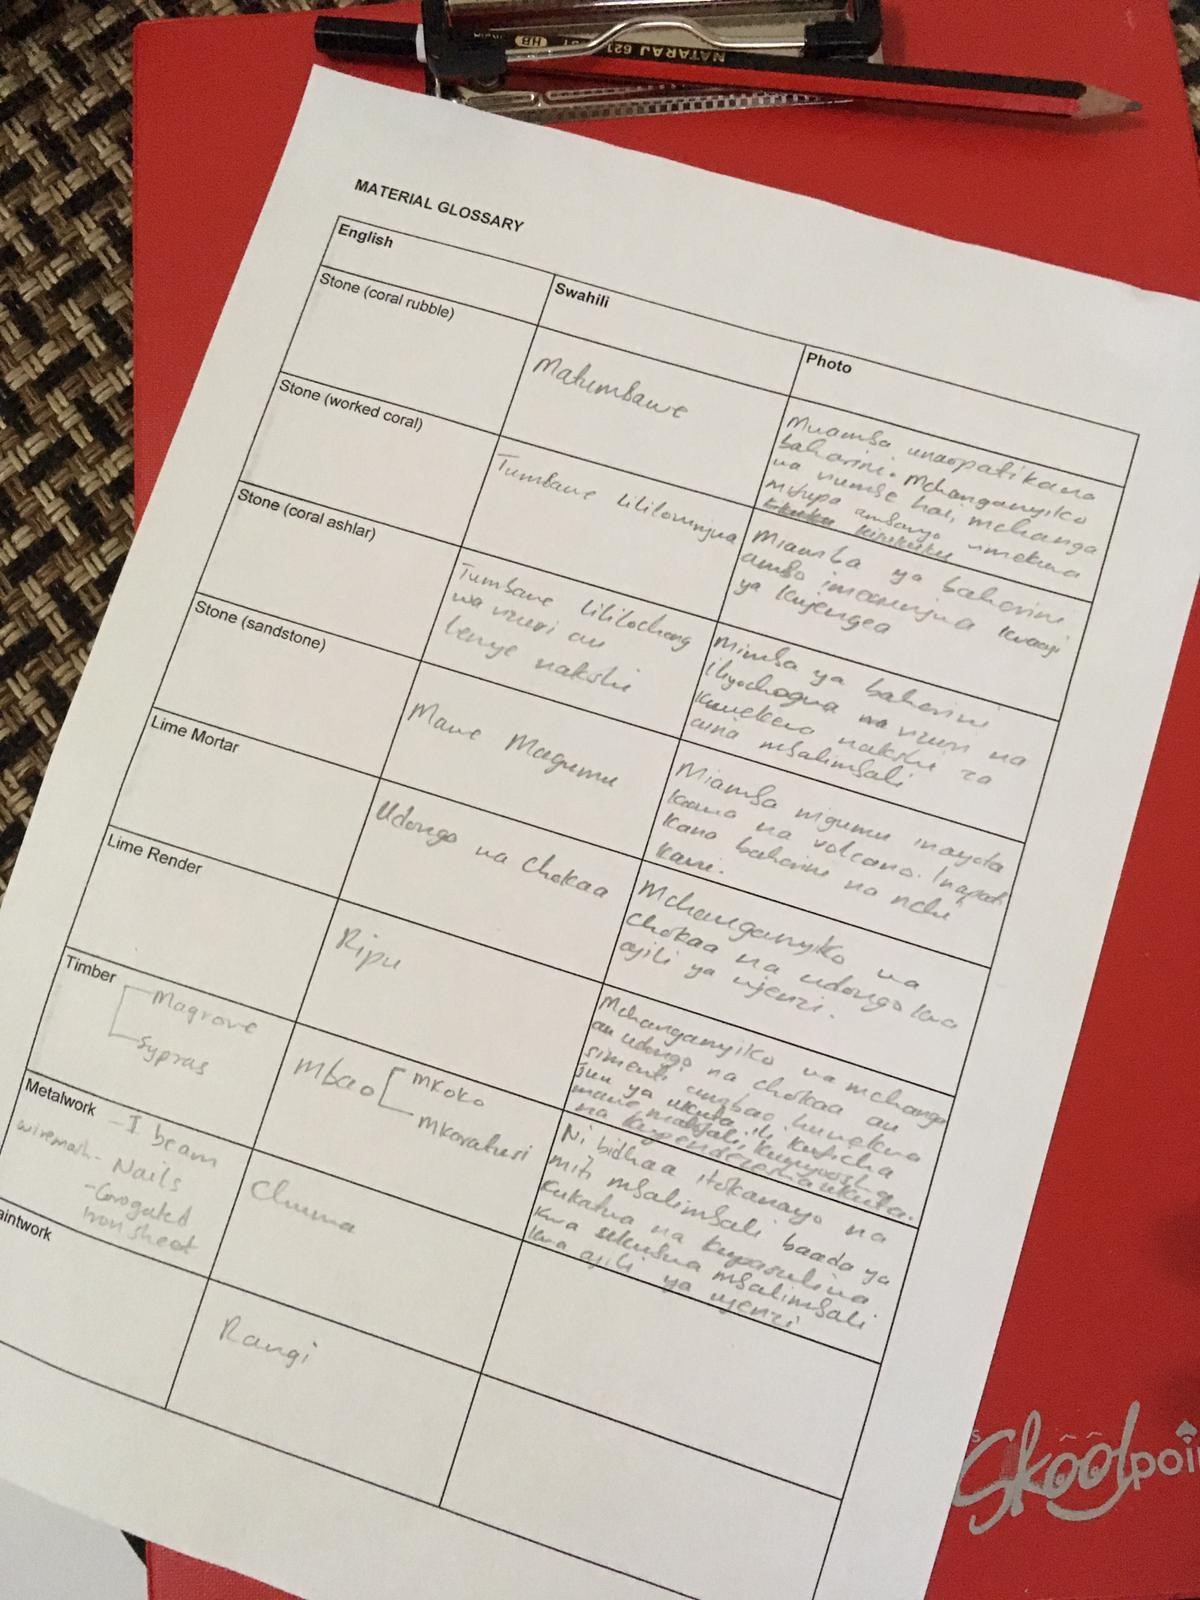 NATARAJ 621 HB
MATERIAL GLOSSARY
English
Swahili
Photo
Stone (coral rubble)
Matumbawe
Muamba unaopatikana
baharini. Mchanganyiko
wa viumbe hai, mchanga
mifupa ambayo imekuwa
Stone (worked coral)
Tumbawe lililovunjwa
Miamba ya baharini
ambo imevunjwa kwaaji
ya kujengea
Stone (coral ashlar)
Tumbawe lililochong
wa vizuri au
lenye nakshi
Mimba ya baharini
iliyochogwa vizuri na
kuwekewa nakshi za
aina mbalimbali
Stone (sandstone)
Mawe Magumu
Miamba migumu inayota
kama na volcano. Inapati
kana baharini na nchi
kavu.
Lime Mortar
Udongo wa chokaa
Mchanganyiko wa
chokaa na udongo kwa
ajili ya ujenzi.
Lime Render
Ripu
Mchanganyiko wa mchanga
au udongo na chokaa au
simenti umbao huwekwa
juu ya ukuta ili kuficha
mawe
na kupendezesha ukuta.
Timber
Magrove
Sypras
Mbao
Mkoko
Mkaratusi
Ni bidhaa itokanayo na
miti mbalimbali baada ya
kukatwa na kupasuliwa
kwa mbalimbali
kwa ajili ya ujenzi
Metalwork
- I beam
wiremash - Nails
- Corogated
iron sheet
Chuma
aintwork
Rangi
Skoolpoi